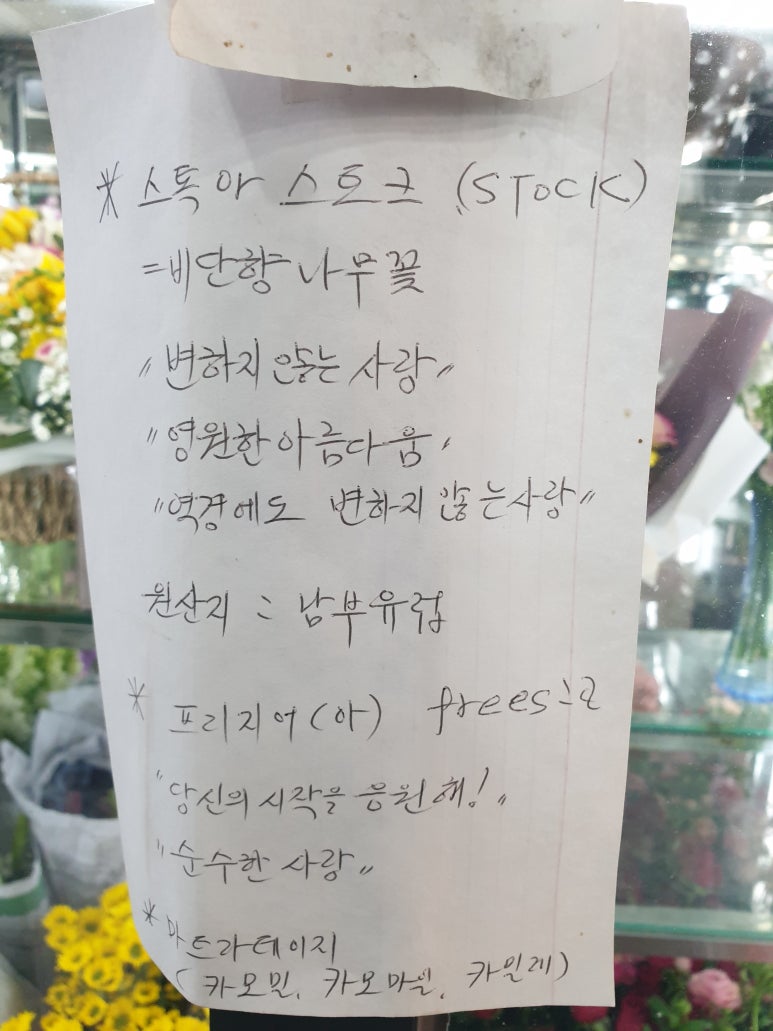 * 스톡아 스토크 (STOCK)
=비단향나무꽃
"변하지 않는 사랑"
"영원한 아름다움"
"역경에도 변하지 않는사랑"
원산지 : 남부유럽
* 프리지어(아) freesia
"당신의 시작을 응원해!"
"순수한 사랑"
* 마트리카리아
(카모밀, 카모마일, 카밀레)